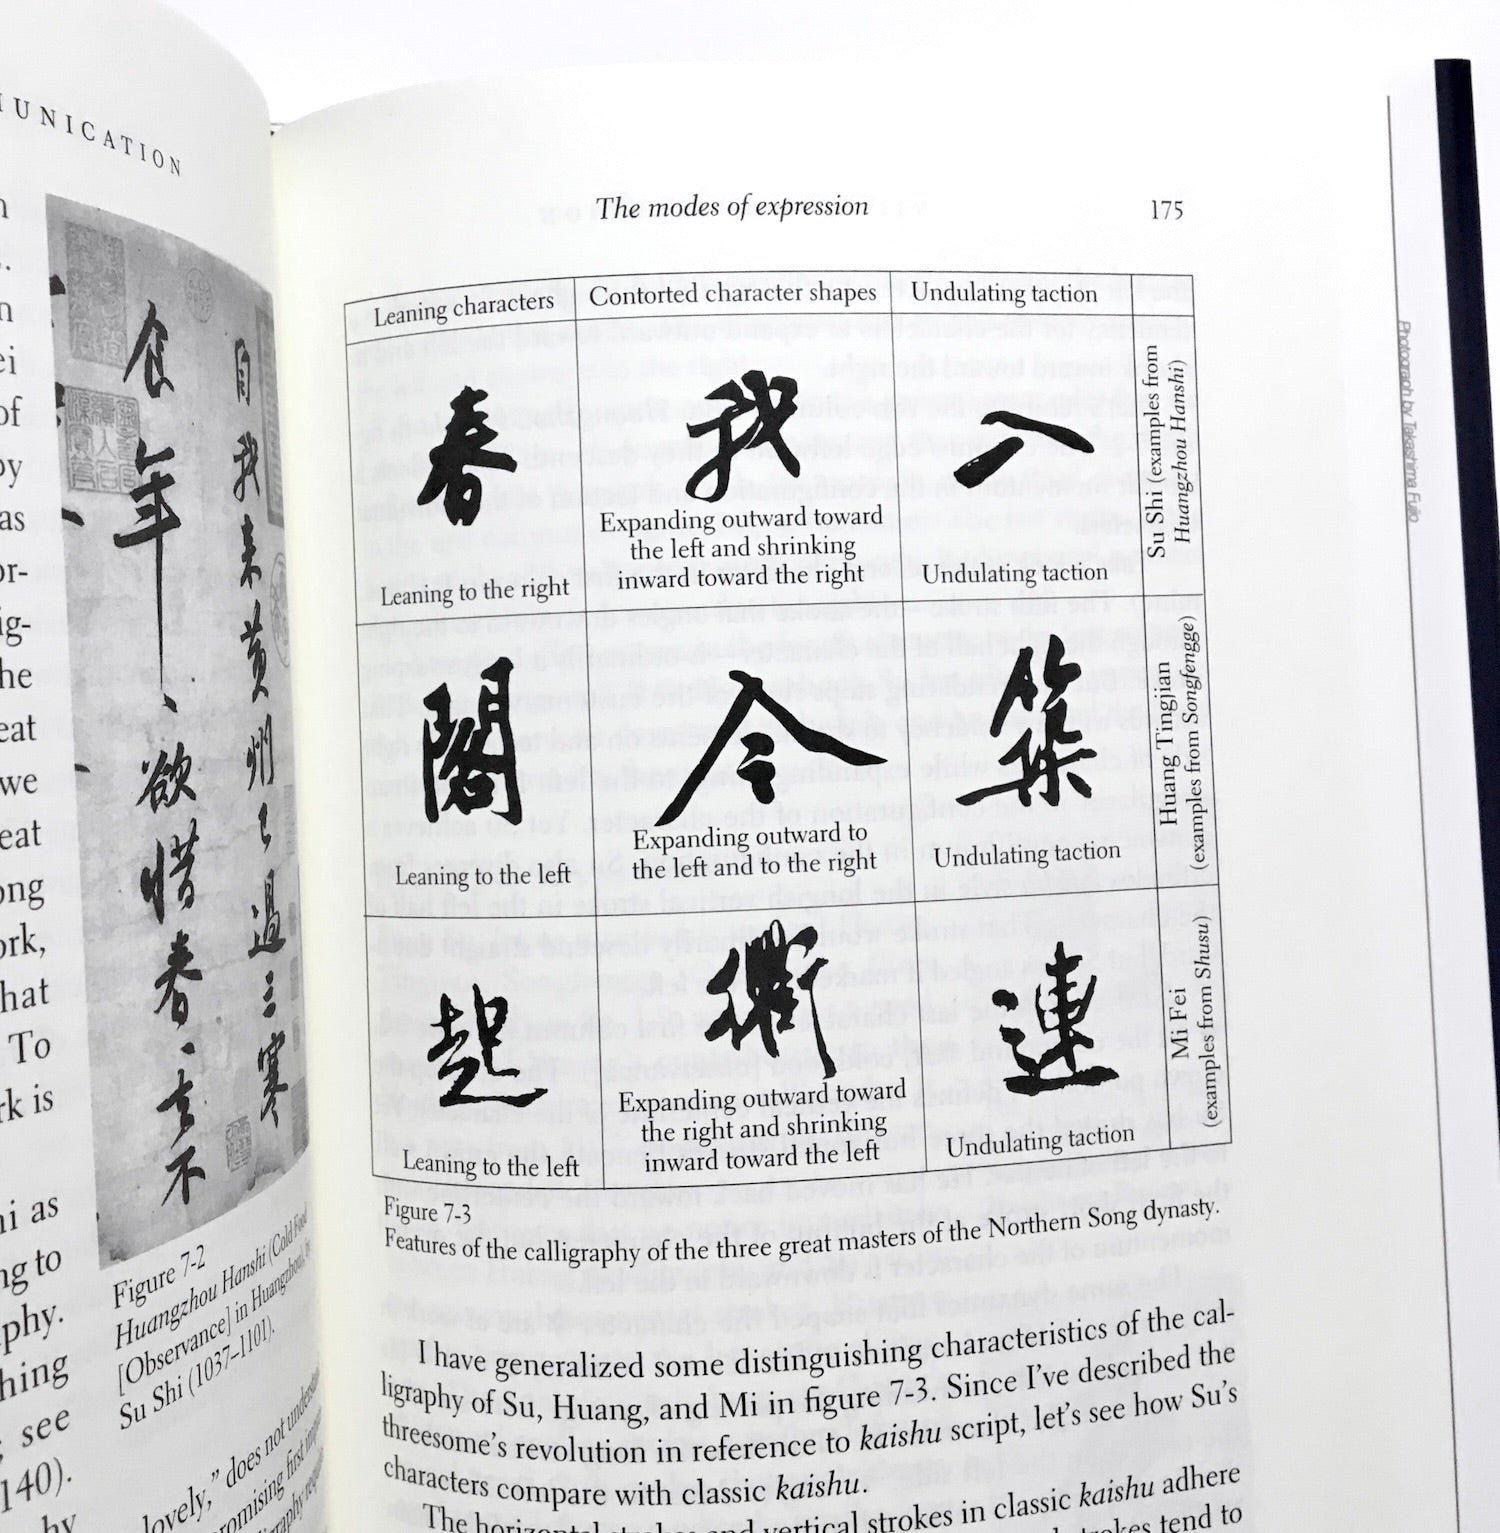 MUNICATION
食
年
欲
惜
春
春
去
不
自
我
来
黄
州
已
過
三
寒
Figure 7-2
Huangzhou Hanshi (Cold Food
[Observance] in Huangzhou),
Su Shi (1037–1101).
n
ei
of
by
as
or-
ig-
he
eat
we
eat
ong
ork,
hat
To
rk is
ni as
ng to
phy.
hing
see
140).
by
lovely,” does not
promising first
The modes of expression
175
Leaning characters
Contorted character shapes
Undulating taction
春
Leaning to the right
我
Expanding outward toward
the left and shrinking
inward toward the right
入
Undulating taction
Su Shi (examples from
Huangzhou Hanshi)
閣
Leaning to the left
令
Expanding outward to
the left and to the right
築
Undulating taction
Huang Tingjian
(examples from Songfengge)
起
Leaning to the left
衝
Expanding outward toward
the right and shrinking
inward toward the left
連
Undulating taction
Mi Fei
(examples from Shusu)
Figure 7-3
Features of the calligraphy of the three great masters of the Northern Song dynasty.
I have generalized some distinguishing characteristics of the cal-
ligraphy of Su, Huang, and Mi in figure 7-3. Since I’ve described the
threesome’s revolution in reference to kaishu script, let’s see how Su’s
characters compare with classic kaishu.
The horizontal strokes and vertical strokes in classic kaishu adhere
strokes tend to
Photograph by Takashima Fujio